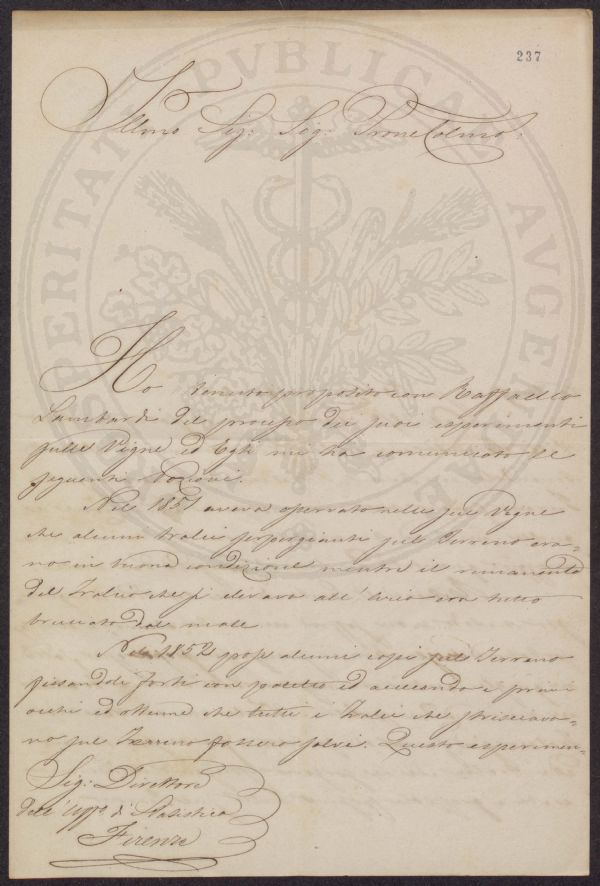 237
Illmo Sig: Sig: Prone Colmo:
Ho tenuto proposito con Raffaello
Lambardi del processo dei suoi esperimenti
sulle Vigne ed Egli mi ha comunicato le
seguenti Nozioni.
Nel 1851 aveva osservato nelle sue Vigne
che alcuni tralci serpeggianti sul Terreno era-
no in buona condizione mentre il rimanente
del Tralcio che si elevava all'aria era tutto
bruciato dal male.
Nel 1852 pose alcuni capi sul Terreno
fissandoli forti con paletto ed accecando i primi
occhi ed ottenne che tutti i Tralci che strisciava-
no sul Terreno fossero salvi. Questo esperimen-
Sig: Direttore
dell'Uffo. di Statistica
Firenze
PROSPERITATI PUBLICAE AVGENDAE